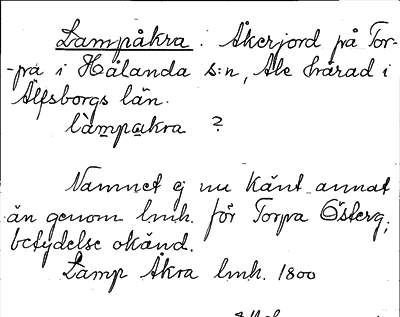 Lampåkra. Åkerjord på Tor-
-pa i Hålanda s:n, Ale härad i
Älfsborgs län.
làmpakra ?
Namnet ej nu känt annat
än genom lmh. för Torpa Österg,
betydelse okänd.
Lamp Åkra lmh. 1800